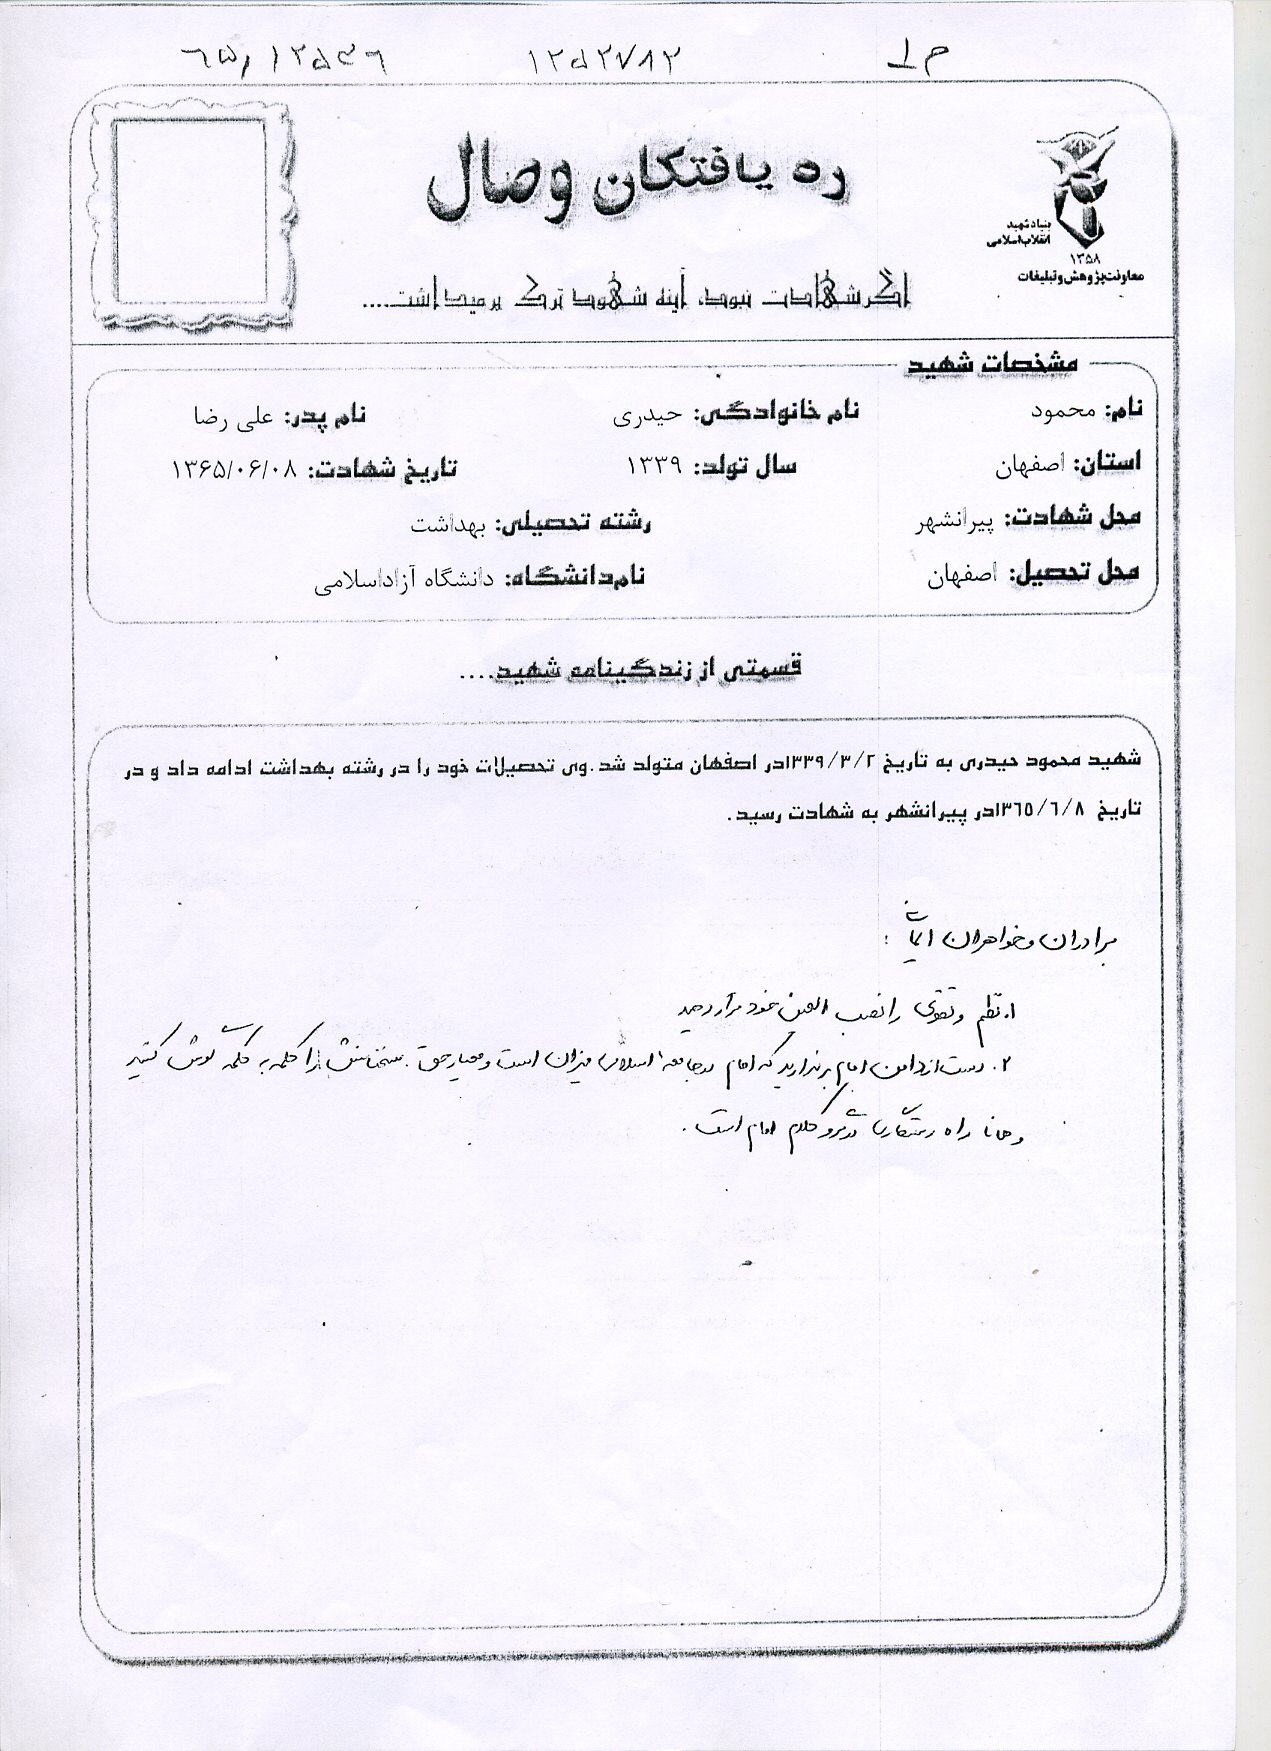 ۱۲۵۲۷۸۲
ره یافتکان وصال
بنیاد شهید
انقلاب اسلامی
۱۳۵۸
معاونت پژوهش و تبلیغات
اگر شهادت نبود، آینه شهود ترک برمیداشت....
مشخصات شهید
نام: محمود نام خانوادگی: حیدری نام پدر: علی رضا
استان: اصفهان سال تولد: ۱۳۳۹ تاریخ شهادت: ۱۳۶۵/۰۶/۰۸
محل شهادت: پیرانشهر رشته تحصیلی: بهداشت
محل تحصیل: اصفهان نام دانشگاه: دانشگاه آزاداسلامی
قسمتی از زندگینامه شهید....
شهید محمود حیدری به تاریخ ۱۳۳۹/۳/۲در اصفهان متولد شد.وی تحصیلات خود را در رشته بهداشت ادامه داد و در
تاریخ ۱۳۶۵/۶/۸در پیرانشهر به شهادت رسید.
برادران و خواهران ایمانی :
۱. نظم و تقوی را نصب العین خود قرار دهید
۲. دست از دامن امام برندارید که امام در جامعه اسلامی میزان است و معیار حق. سخنانش را کلمه به کلمه گوش کنید
و همانا راه رستگاری در گرو کلام امام است.